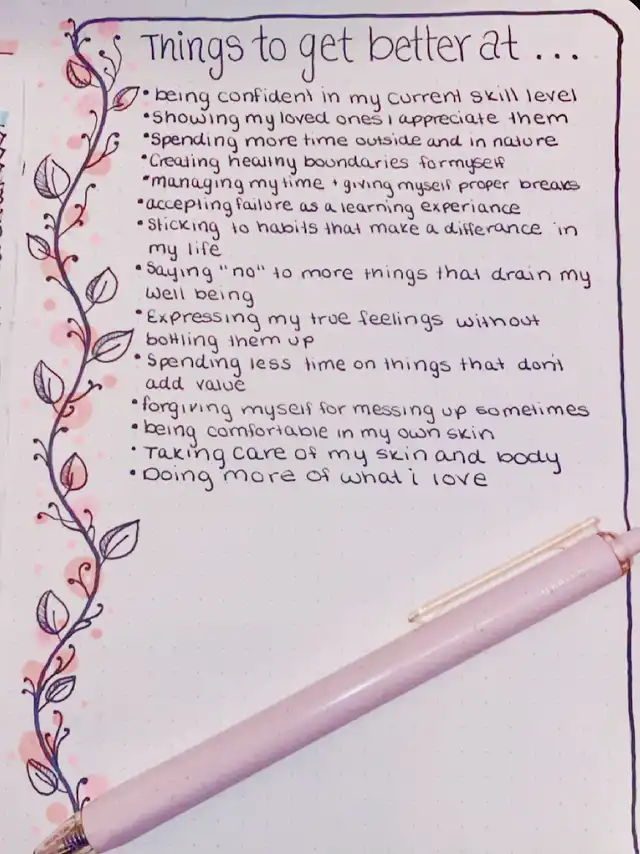 Things to get better at ...
• being confident in my current skill level
• Showing my loved ones i appreciate them
• Spending more time outside and in nature
• Creating healhy boundaries for myself
• managing my time + giving myself proper breaks
• accepting failure as a learning experiance
• Sticking to habits that make a differance in
my life
• Saying "no" to more things that drain my
well being
• Expressing my true feelings without
bottling them up
• Spending less time on things that don't
add value
• forgiving myself for messing up sometimes
• being comfortable in my own skin
• Taking care of my skin and body
• Doing more of what i love